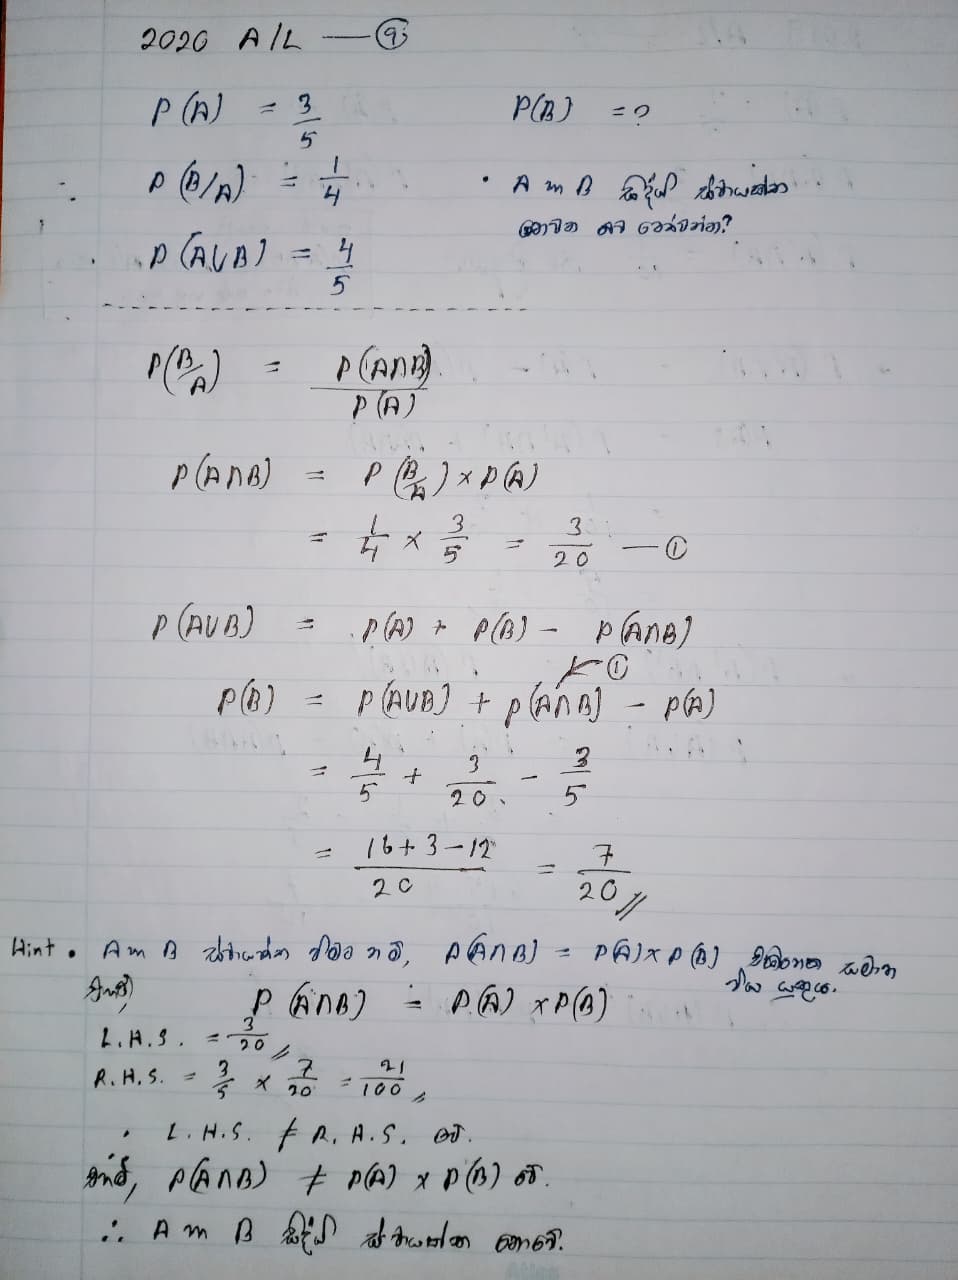 2020 A/L — ⑨
P(A) = 3/5    P(B) = ?
P(B/A) = 1/4    • A හා B සිද්ධි ස්වායක්ත
නොවන බව පෙන්වන්න?
P(A∪B) = 4/5
P(B/A) = P(A∩B) / P(A)
P(A∩B) = P(B/A) × P(A)
= 1/4 × 3/5 = 3/20 — ①
P(A∪B) = P(A) + P(B) − P(A∩B)
①
P(B) = P(A∪B) + P(A∩B) − P(A)
= 4/5 + 3/20 − 3/5
= 16+3−12 / 20 = 7/20 //
Hint • A හා B ස්වායක්ත වීමට නම්, P(A∩B) = P(A) × P(B) සමාන
විය යුතුය.
P(A∩B) = P(A) × P(B)
L.H.S. = 3/20 //
R.H.S. = 3/5 × 7/20 = 21/100 //
• L.H.S. ≠ R.H.S. වේ.
එනම්, P(A∩B) ≠ P(A) × P(B) වේ.
∴ A හා B සිද්ධි ස්වායක්ත නොවේ.